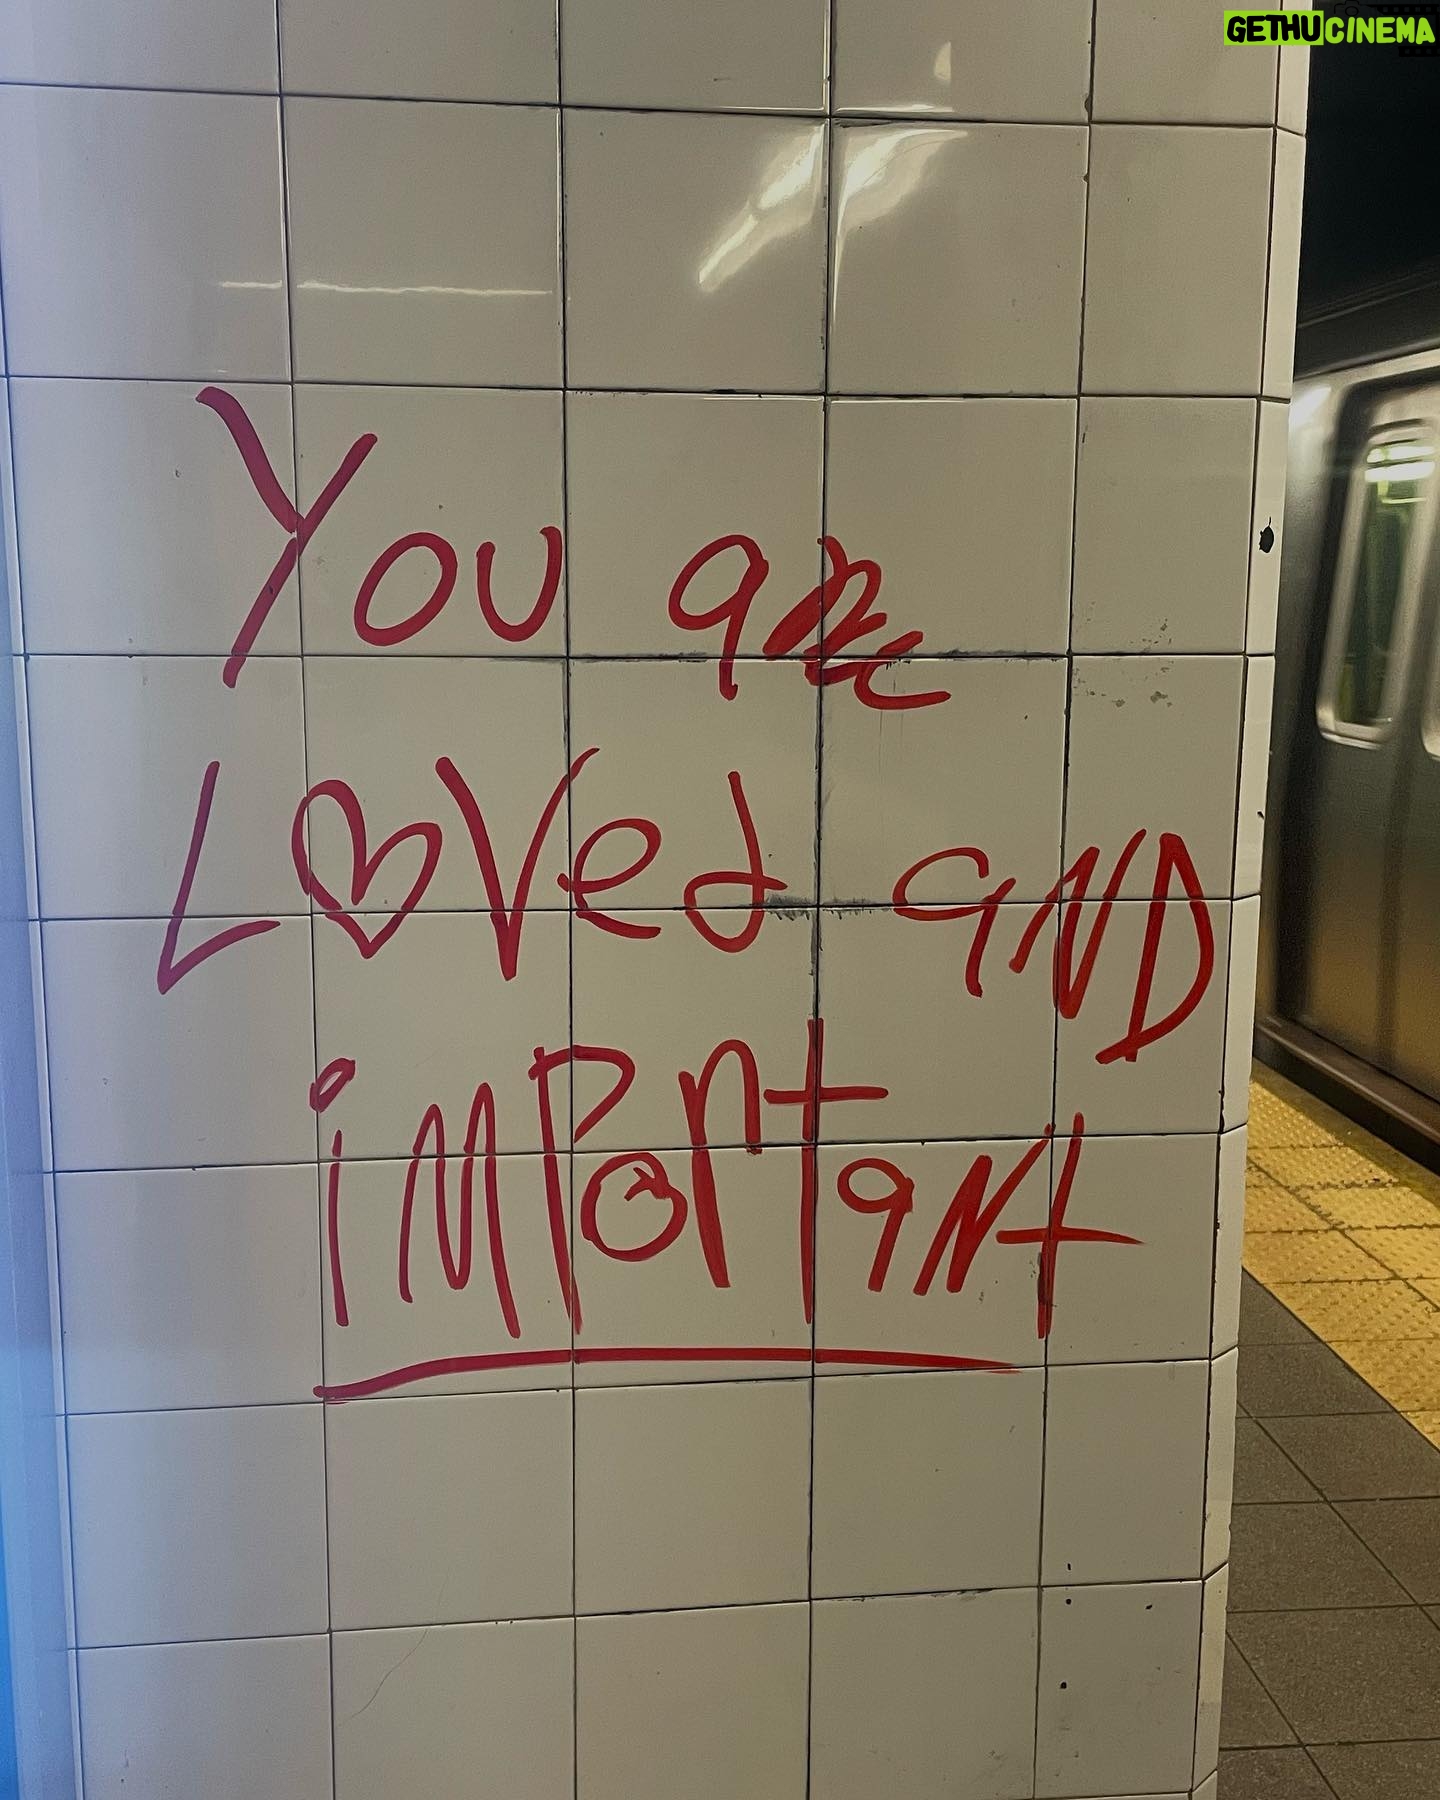 GETHUCINEMA
You are
LOVed aND
iMPORtaNt